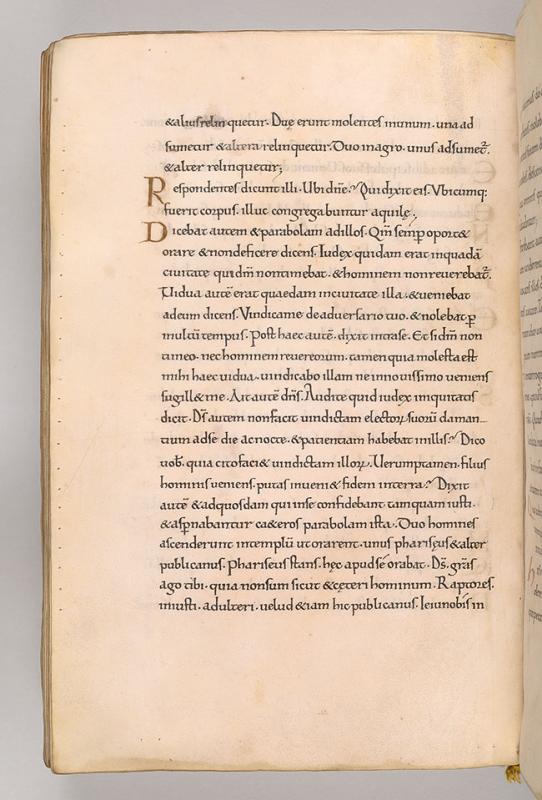 &alius relinquetur. Duę erunt molentes inunum. una ad
sumetur &altera relinquetur. Duo inagro. unus adsumet̃.
&alter relinquetur;
Respondentes dicunt illi. Ubi dñe? Qui dixit eis. Vbicumq:
fuerit corpus. illuc congregabuntur aquilę.
Dicebat autem &parabolam adillos. Qm̃ semp oport&
orare &nondeficere dicens. Iudex quidam erat inquadā
ciuitate qui dm̃ nontimebat. &hominem nonreuerebat̃.
Vidua autē erat quaedam inciuitate illa. &ueniebat
adeum dicens. Vindicame deaduersario tuo. &nolebat p
multū tempus. Post haec autē. dixit intrase. Etsi dm̃ non
timeo. nec hominem reuereor. tamen quia molesta est
mihi haec uidua. uindicabo illam ne innouissimo ueniens
sugill& me. Ait autē dñs. Audite quid iudex iniquitatis
dicit. Ds̃ autem nonfacit uindictam electorꝝ suorū claman
tium adse die acnocte. &patientiam habebat inillis? Dico
uob̃. quia citofaci& uindictam illorꝝ. Uerumptamen filius
hominis ueniens. putas inueni& fidem interra? Dixit
autē &adquosdam qui inse confidebant tamquam iusti.
&aspnabantur ca&eros parabolam ista. Duo homines
ascenderunt intemplū utorarent. unus phariseus &alter
publicanus. Phariseus stans. hęc apud sé orabat. Ds̃. grãs
ago tibi. quia nonsum sicut &cęteri hominum. Raptores.
iniusti. adulteri. uelud &iam hic publicanus. Ieiuno bis in